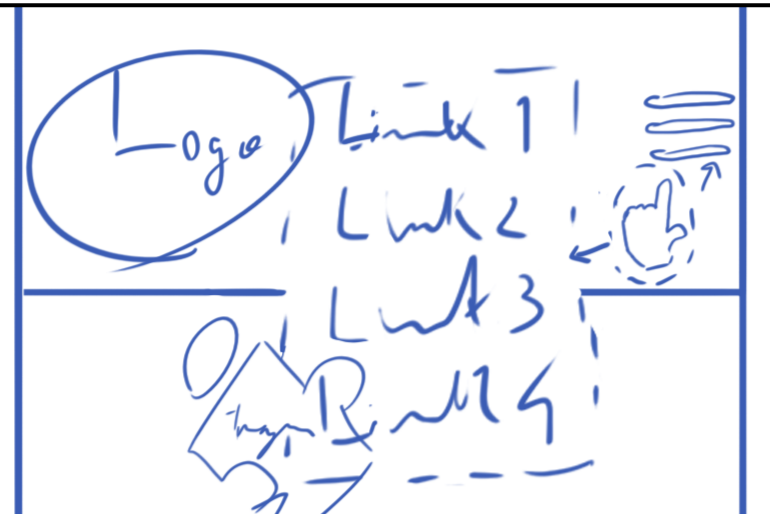 Logo
Link 1
Link 2
Link 3
Link 4